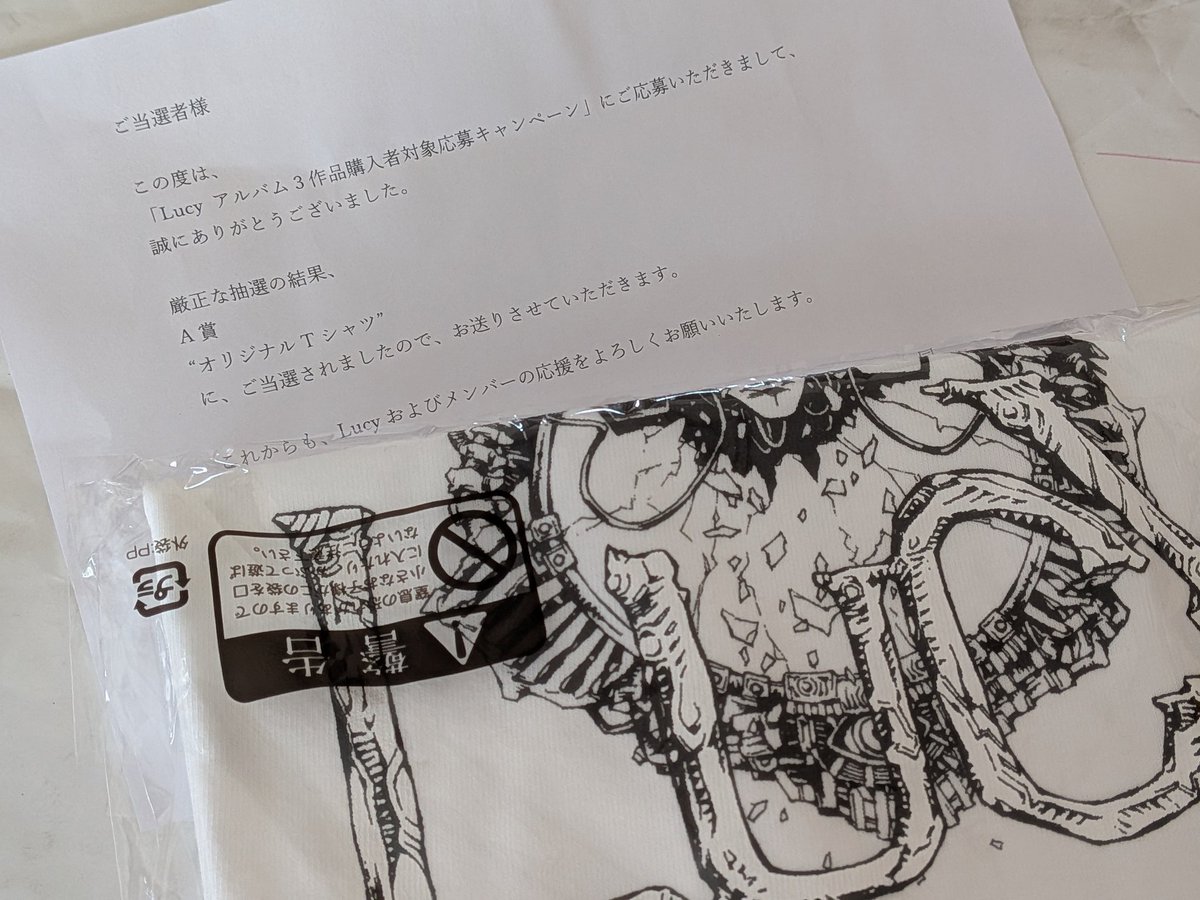 ご当選者様
この度は、
「Lucy アルバム3作品購入者対象応募キャンペーン」にご応募いただきまして、
誠にありがとうございました。
厳正な抽選の結果、
A賞
“オリジナルTシャツ”
に、ご当選されましたので、お送りさせていただきます。
これからも、Lucyおよびメンバーの応援をよろしくお願いいたします。
警告
窒息の
ありますので
小さなお子様がこの袋を口
に入れたり、かぶって遊ば
ないように
さい。
プラ
外袋:PP
Luc